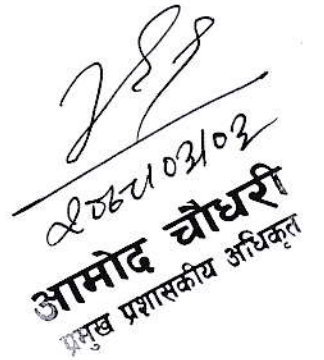 २०८१०३१०३
आमोद चौधरी
प्रमुख प्रशासकीय अधिकृत